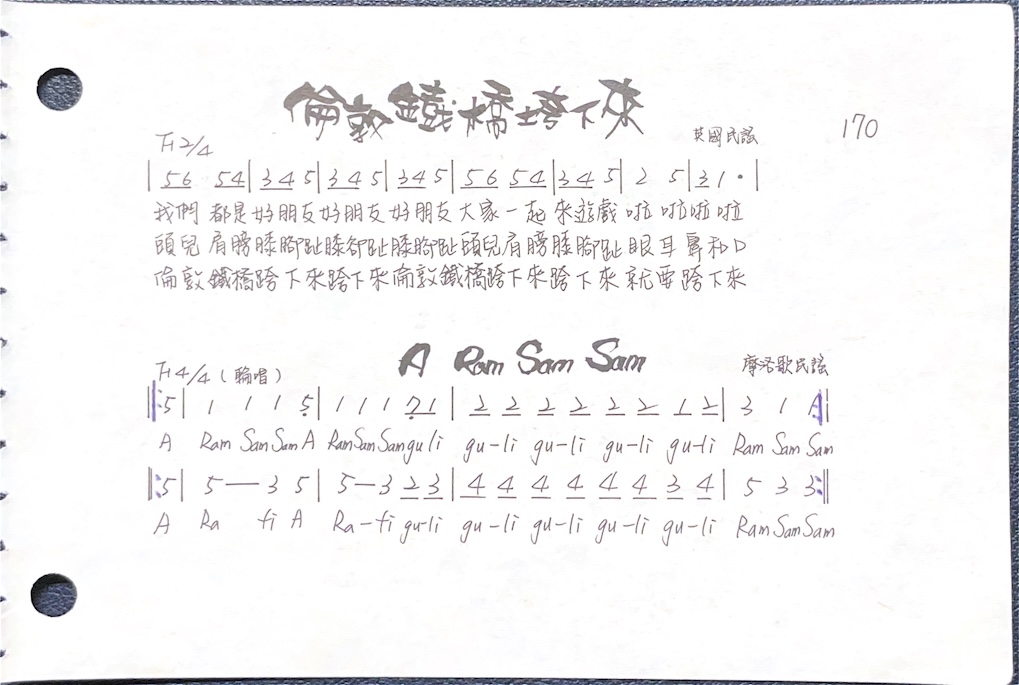 倫敦鐵橋垮下來
170
英國民謠
F 2/4
| 56 54 | 34 5 | 34 5 | 34 5 | 56 54 | 34 5 | 2 5 | 31 • |
我們 都是好朋友好朋友好朋友大家一起來遊戲啦啦啦啦
頭兒肩膀膝腳趾膝腳趾膝腳趾頭兒肩膀膝腳趾眼耳鼻和口
倫敦鐵橋跨下來跨下來倫敦鐵橋跨下來跨下來就要跨下來
A Ram Sam Sam
F 4/4 (輪唱)
摩洛歌民謠
‖: 5 | 1 1 1 5̣ | 1 1 1 7̣1 | 2 2 2 2 2 2 1 2 | 3 1 :|
A Ram Sam Sam A Ram Sam Sam gu li gu-li gu-li gu-li gu-li Ram Sam Sam
‖: 5 | 5 — 3 5 | 5 — 3 2 3 | 4 4 4 4 4 4 3 4 | 5 3 3 :‖
A Ra fi A Ra-fi gu-li gu-li gu-li gu-li gu-li Ram Sam Sam